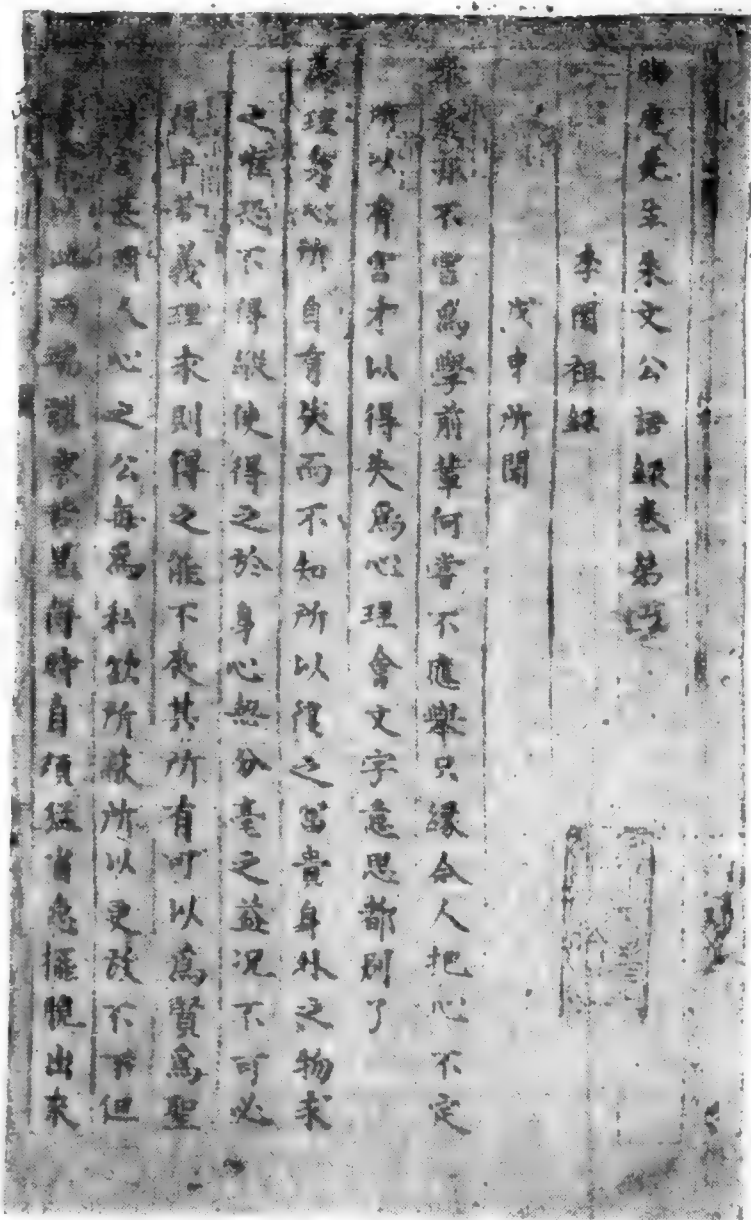 晦庵先生朱文公語錄卷第
李閎祖錄
戊申所聞
不富為學前輩何嘗不應舉只緣今人把心不定
所以有害才以得失為心理會文字意思都別了
為理身心所自有失而不知所以復之富貴身外之物求
之惟恐不得縱使得之於身心無分毫之益況不可必
得乎若義理求則得之能不喪其所有可以為賢為聖
甚明人心之公每為私欲所蔽所以更放不下但
兩端體察若思得時自須猛省急擺脫出來